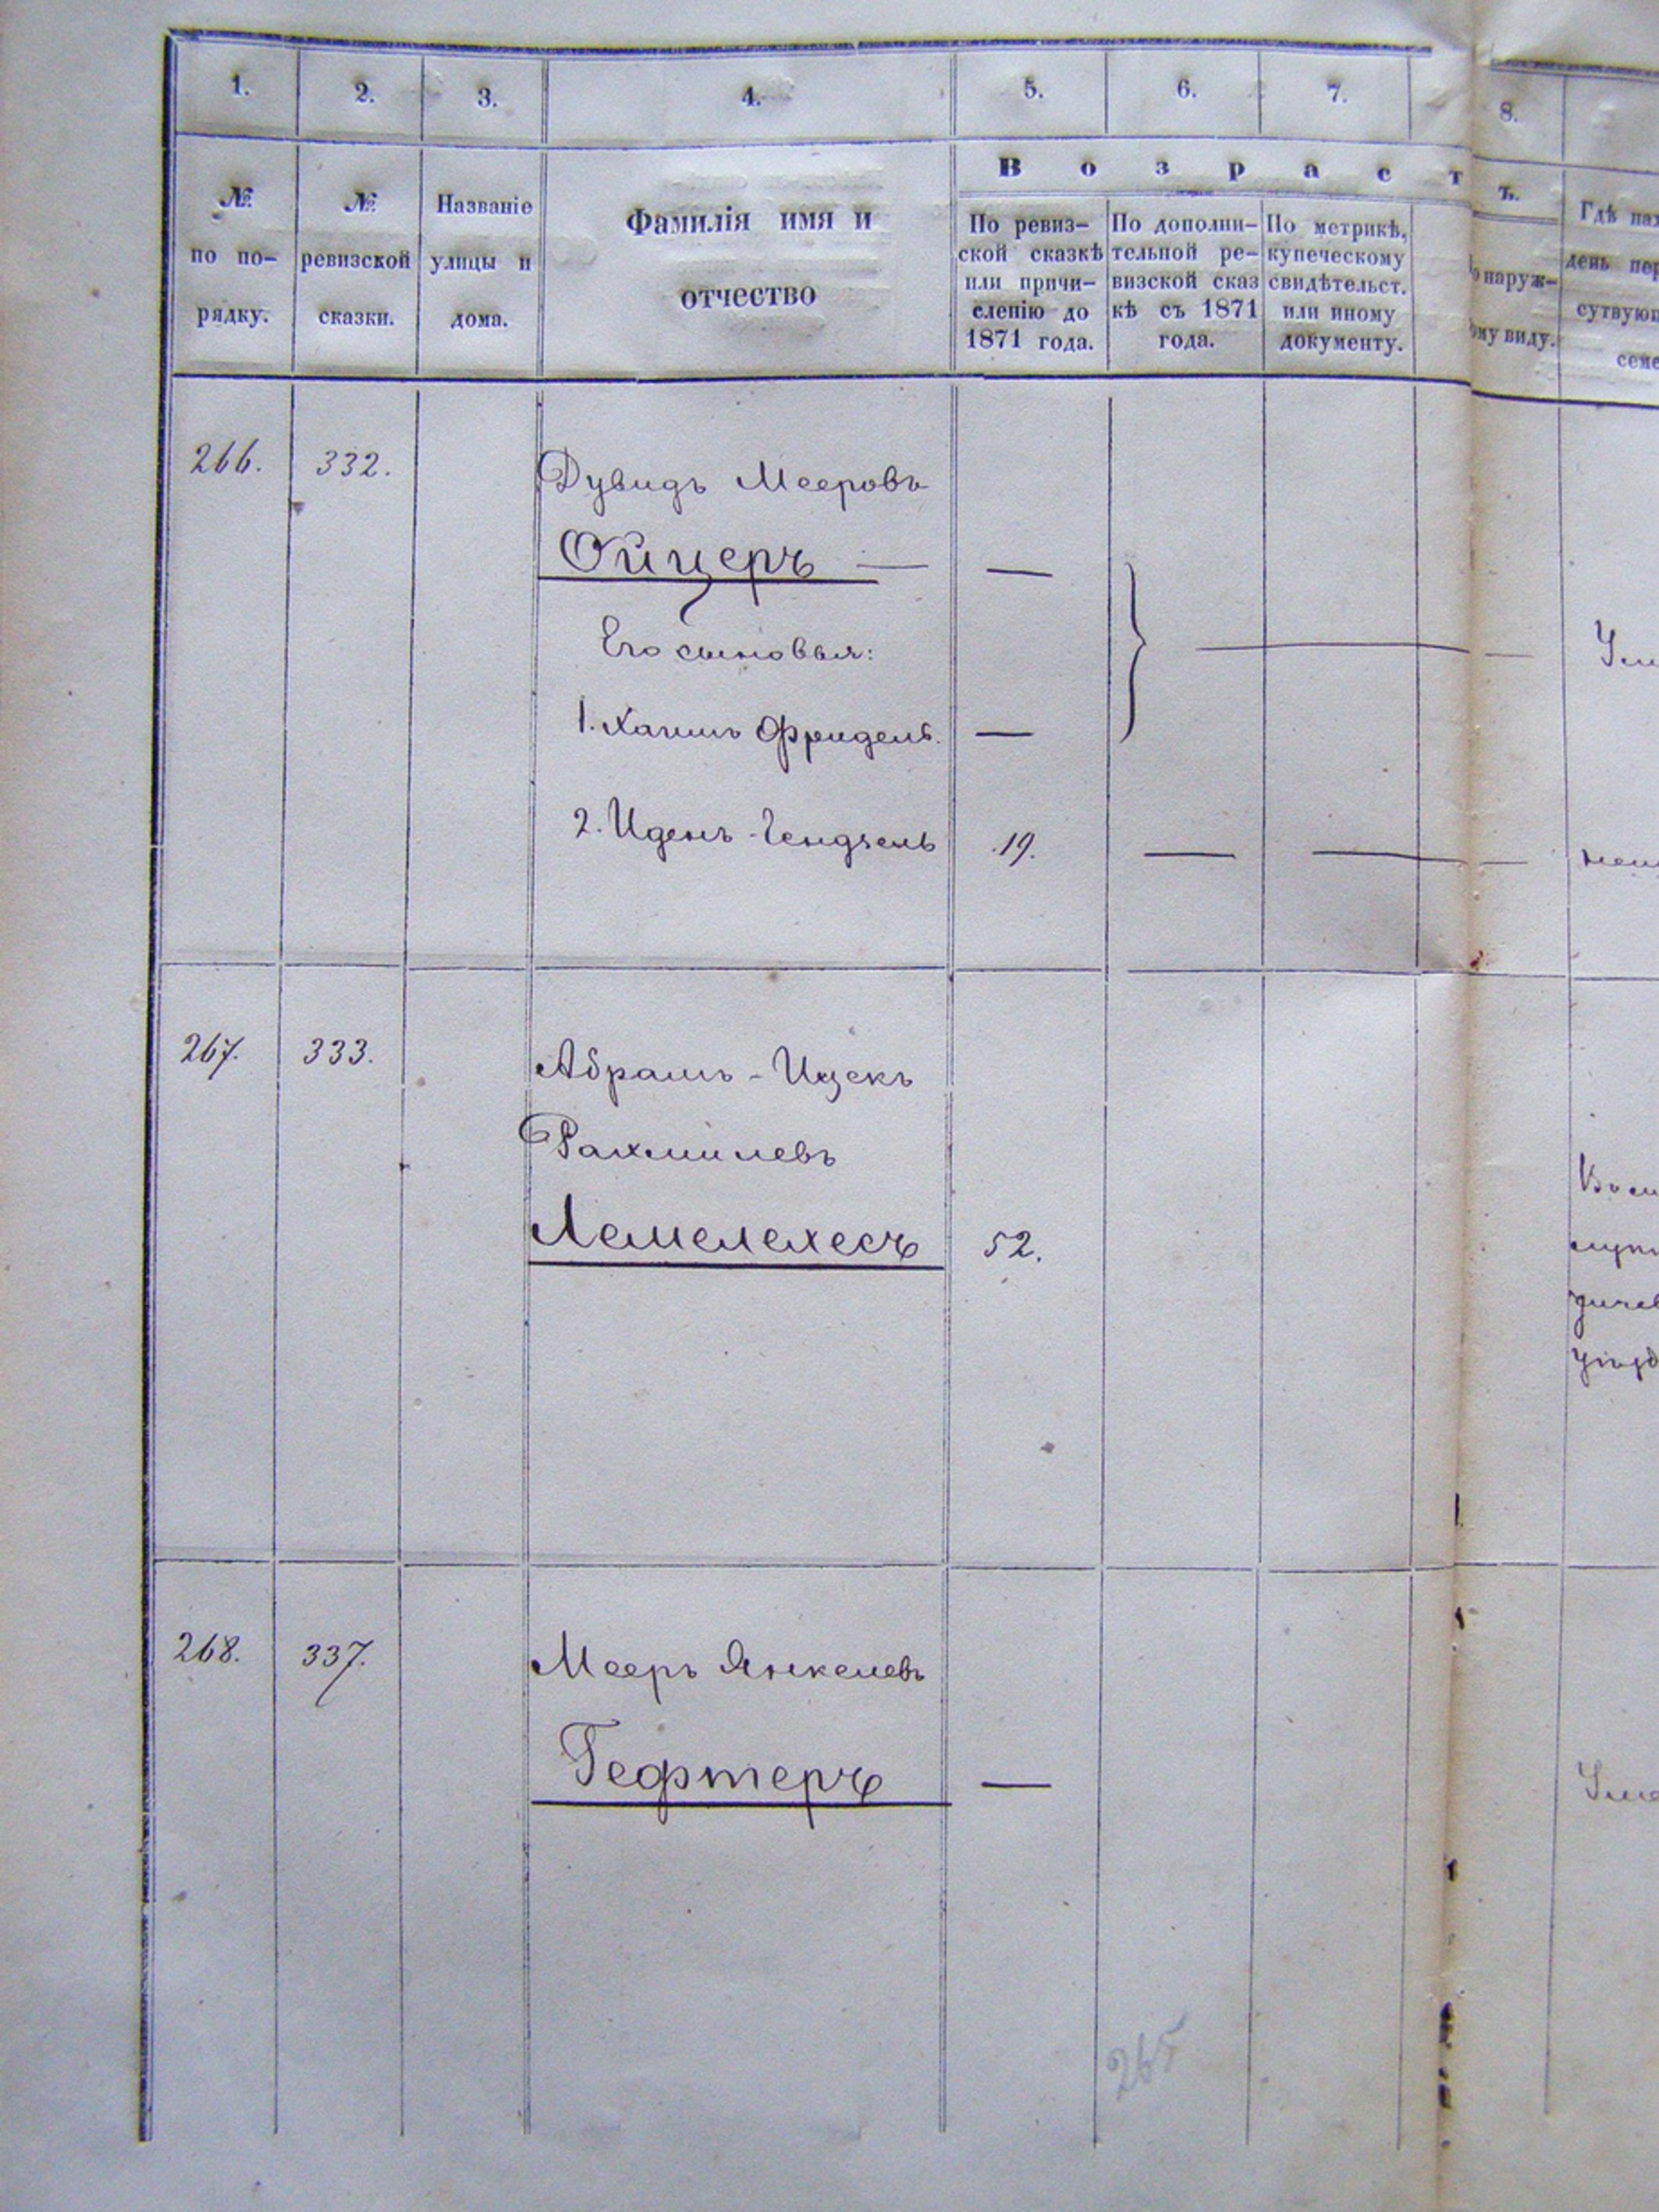 1. 2. 3. 4. 5. 6. 7. 8.
№ по по- рядку.
№ ревизской сказки.
Названіе улицы и дома.
Фамилія имя и
отчество
Возрастъ.
По ревиз-
ской сказкѣ
или причи-
сленію до
1871 года.
По дополни-
тельной ре-
визской сказ
кѣ съ 1871
года.
По метрикѣ,
купеческому
свидѣтельст.
или иному
документу.
наруж-
виду.
Гдѣ
день
266. 332. Дувидъ Мееровъ
Ойцеръ — —
Его сыновья:
1. Хаимъ Фридель. —
2. Иденъ-Гендзель 19. — —
267. 333. Абрамъ-Ицекъ
Рахмилевъ
Лемелехесъ 52.
268. 337. Мееръ Янкелевъ
Гефтеръ —
265